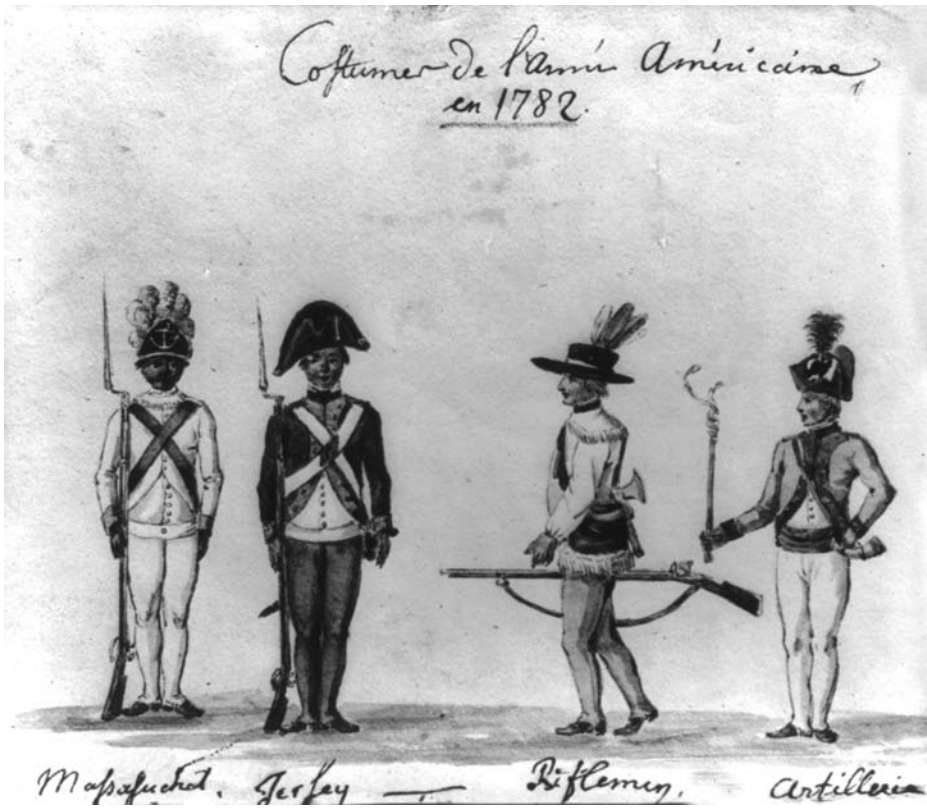 Costumes de l'Armée Américaine
en 1782.
Massachuset. Jersey — Riflemen. Artillerie